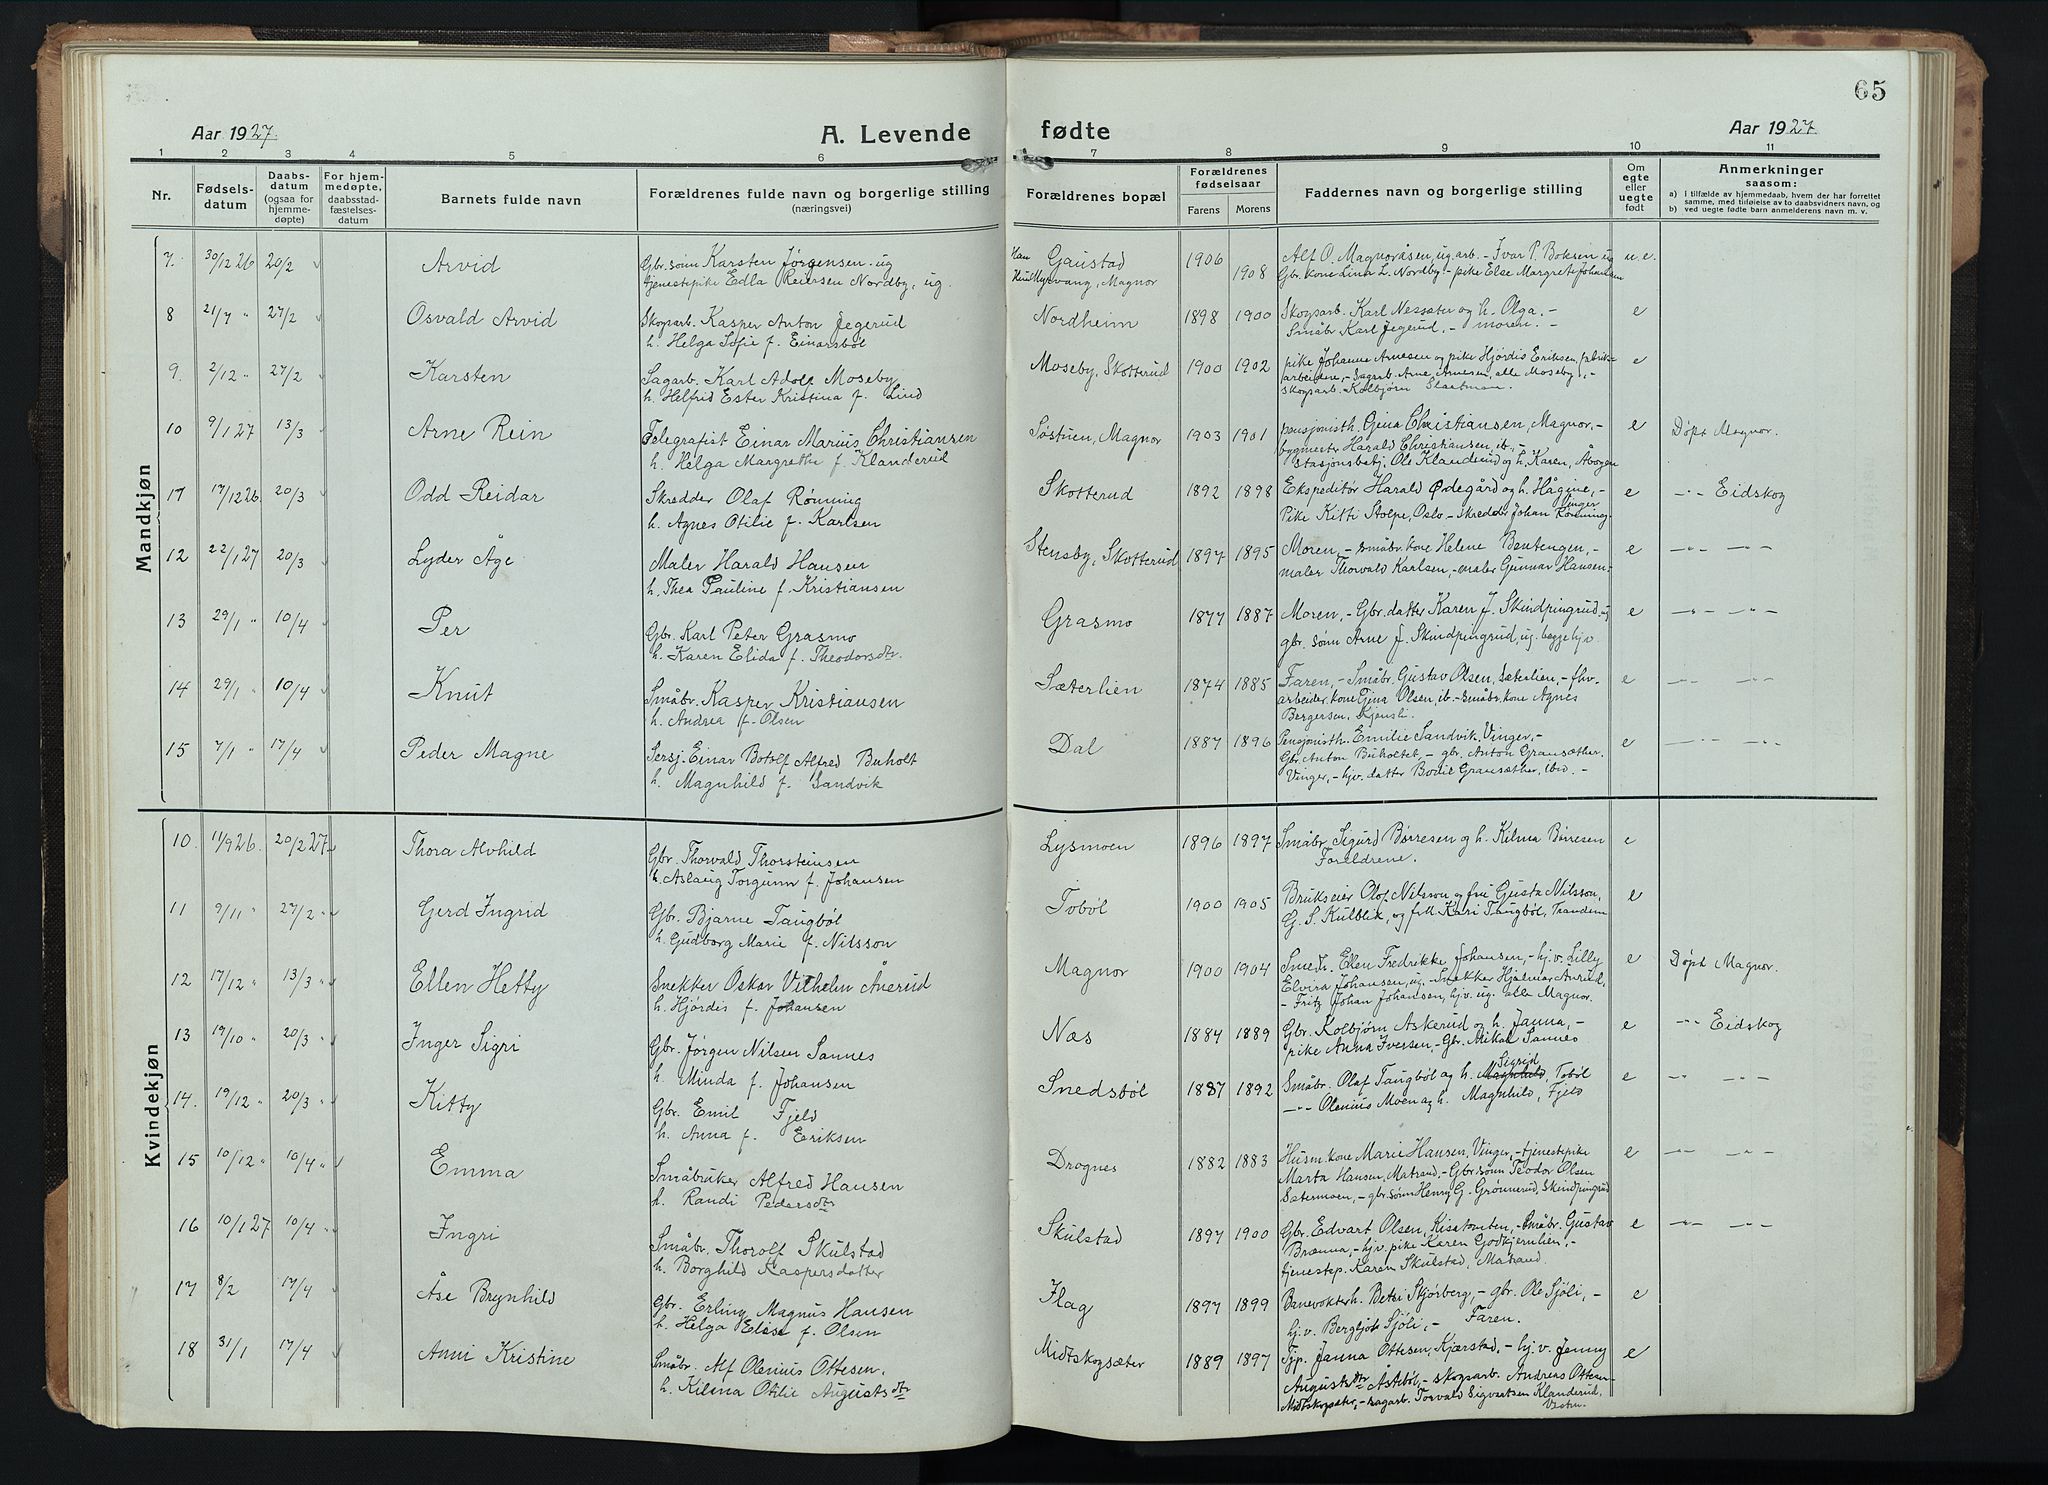 65
Aar 1927. A. Levende fødte Aar 1927.
1 2 3 4 5 6 7 8 9 10 11
Nr. Fødselsdatum Daabsdatum (ogsaa for hjemmedøpte) For hjemmedøpte, daabsstadfæstelsesdatum Barnets fulde navn Forældrenes fulde navn og borgerlige stilling (næringsvei) Forældrenes bopæl Forældrenes fødselsaar Farens Morens Faddernes navn og borgerlige stilling Om egte eller uegte født Anmerkninger saasom:
a) i tilfælde av hjemmedaab, hvem der har forrettet samme, med tilføielse av to daabsvidners navn, og
b) ved uegte fødte barn anmelderens navn m. v.
Mandkjøn
7. 30/12 26 20/2 Arvid Gbr. sønn Karsten Jørgensen ug Han Gaustad 1906 Alf O. Magnoråsen, ug. arb. - Ivar P. Boksen ug u. e.
tjenestepike Edla Reiersen Nordby, ug. Hun Myrvang, Magnor 1908 Gbr. kone Lina L. Nordby - pike Else Margrete Johansen
8 21/7 " 27/2 Osvald Arvid Skogsarb. Kasper Anton Jegerud Nordheim 1898 1900 Skogsarb. Karl Nessæter og h. Olga. - e
h. Helga Sofie f. Einarsbøl Småbr Karl Jegerud, - moren. -
9. 2/12 " 27/2 Karsten Sagarb. Karl Adolf Moseby Moseby, Skotterud 1900 1902 pike Johanne Arnesen og pike Hjørdis Eriksen, fabrik- e
h. Helfrid Ester Kristina f. Lind arbeidere, - Sagarb. Arne Arnesen, alle Moseby, -
skogsarb. Kolbjørn Slaatman.
10 9/1 27 13/3 Arne Rein Telegrafist Einar Marius Christiansen Søstuen, Magnor 1903 1901 pensjonisth. Gjena Christiansen, Magnor, - e Døpt Magnor.
h. Helga Margrethe f. Klanderud bygmester Harald Christiansen, ib, -
stasjonsbetj. Ole Klanderud og h. Karen, Åbogen
17 17/12 26. 20/3 Odd Reidar Skredder Olaf Rønning Skotterud 1892 1898 Ekspeditør Harald Ødegård og h. Hågine, - e -"- Eidskog
h. Agnes Otilie f. Karlsen Pike Kitti Stolpe, Oslo - skredder Johan Rønning, Vinger
12 22/1 27 20/3 Lyder Åge Maler Harald Hansen Stensby, Skotterud 1897 1895 Moren, - småbr. kone Helene Bentengen, - e -"- -"-
h. Thea Pauline f. Kristiansen maler Thorvald Karlsen, - maler Gunnar Hansen -
13 29/1 " 10/4 Per Gbr. Karl Peter Grasmo Grasmo 1877 1887 Moren, - Gbr. datter Karen J. Skindpingrud. ug e -"- -"-
h. Karen Elida f. Theodorsdtr. gbr. sønn Arne J. Skindpingrud, ug. begge hj.v.
14 29/1 " 10/4 Knut Småbr. Kasper Kristiansen Sæterlien 1874 1885 Faren, - Småbr. Gustav Olsen, Sæterlien, - fhv. e -"- -"-
h. Andrea f. Olsen arbeider kone Gina Olsen ib. - småbr. kone Agnes
Bergersen, Kjensli.
15 7/1 " 17/4 Peder Magne Sersj. Einar Botolf Alfred Buholt Dal 1887 1896 Pensjonisth. Emilie Sandvik, Vinger, - e -"- -"-
h. Magnhild f. Sandvik Gbr. Anton Buholtet - gbr. Anton Gransæther.
Vinger, - hjv. datter Bodil Gransæther, ibid. -
Kvindekjøn
10. 11/9 26. 20/2 27. Thora Alvhild Gbr. Thorvald Thorsteinsen Lysmoen 1896 1897 Småbr. Sigurd Børresen og h. Kilma Børresen e
h. Aslaug Torgunn f. Johansen Foreldrene.
11 9/11 " 27/2 " Gerd Ingrid Gbr. Bjarne Taugbøl Tobøl 1900 1905 Brukseier Olof Nilsson og fru Gusta Nilsson, e
h. Gudborg Marie f. Nilsson G. S. Kulblik, og frk Kari Taugbøl, Trandem
12 17/12 " 13/3 " Ellen Hetty Snekker Oskar Vilhelm Ånerud Magnor 1900 1904 Smedk. Ellen Fredrikke Johansen, - hj. v. Lilly e Døpt Magnor.
h. Hjørdis f. Johansen Elvira Johansen, ug. - Snekker Hjalmar Anrud,
- Fritz Johan Johansen, hjv. ug. alle Magnor.
13 19/10 " 20/3 " Inger Sigri Gbr. Jørgen Nilsen Sannes Næs 1884 1889 Gbr. Kolbjørn Askerud og h. Janna, - e -"- Eidskog
h. Minda f. Johansen pike Anna Iversen, - Gbr. Mikal Sannes
14. 19/12 " 20/3 " Kitty Gbr. Emil Fjeld Snedsbøl 1887 1892 Småbr. Olaf Taugbøl og h. Magnhild, Sigrid Tobøl e -"- -"-
h. Anna f. Eriksen -"- Olenius Moen og h. Magnhild, Fjeld
15 10/12 " 10/4 " Emma Småbruker Alfred Hansen Drognes 1882 1883 Husm. kone Marie Hansen, Vinger, - tjenestepike e -"- -"-
h. Randi Pedersdtr Marta Hansen, Matrand, - Gbr. sønn Teodor Olsen
Sætermoen, - gbr. sønn Henry G. Grønnerud, Skindpingrud
16 10/1 27 10/4 " Ingri Småbr. Thorolf Skulstad Skulstad 1897 1900 Gbr. Edvart Olsen, Kisatomten, - Småbr. Gustav e -"- -"-
h. Borghild Kaspersdatter Brænna, - hj.v. pike Karen Godkjernlien, -
tjenestep. Karen Skulstad, Matrand.
17 8/2 17/4 Åse Brynhild Gbr. Erling Magnus Hansen Flag 1897 1899 Banevokterh. Betsi Skjørberg, - gbr. Ole Sjøli, - e
h. Helga Elise f. Olsen hj. v. Bergljot Sjøli, - Faren.
18 31/1 17/4 Anni Kristine Småbr. Alf Olenius Ottesen. Midtskogsæter 1889 1897 Tjp. Janna Ottesen, Kjærstad, - hj. v. Jenny e
h. Kilma Otilie Augustsdtr Augustsdtr Åstebøl, - skogsarb. Andreas Ottesen
Midtskogsæter, - sagarb. Torvald Sigvartsen Klanderud,